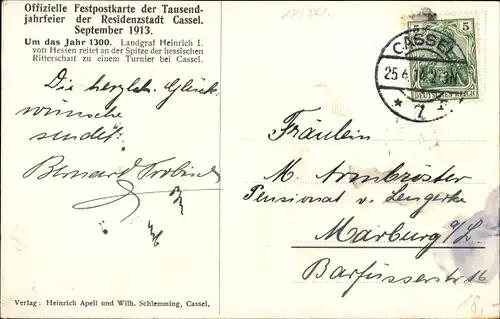 Offizielle Festpostkarte der Tausend-
jahrfeier der Residenzstadt Cassel.
September 1913.
Um das Jahr 1300. Landgraf Heinrich I.
von Hessen reitet an der Spitze der hessischen
Ritterschaft zu einem Turnier bei Cassel.
Die herzlch. Glück
wünsche
sendet:
Bernard
CASSEL
25.6.
* 7
5 5
DEUTSCHES REICH
Fräulein
M. Armbröster
Pensionat v. Lengerke
Marburg a/L.
Barfüsserstr 16
18,-
Verlag: Heinrich Apell und Wilh. Schlemming, Cassel.